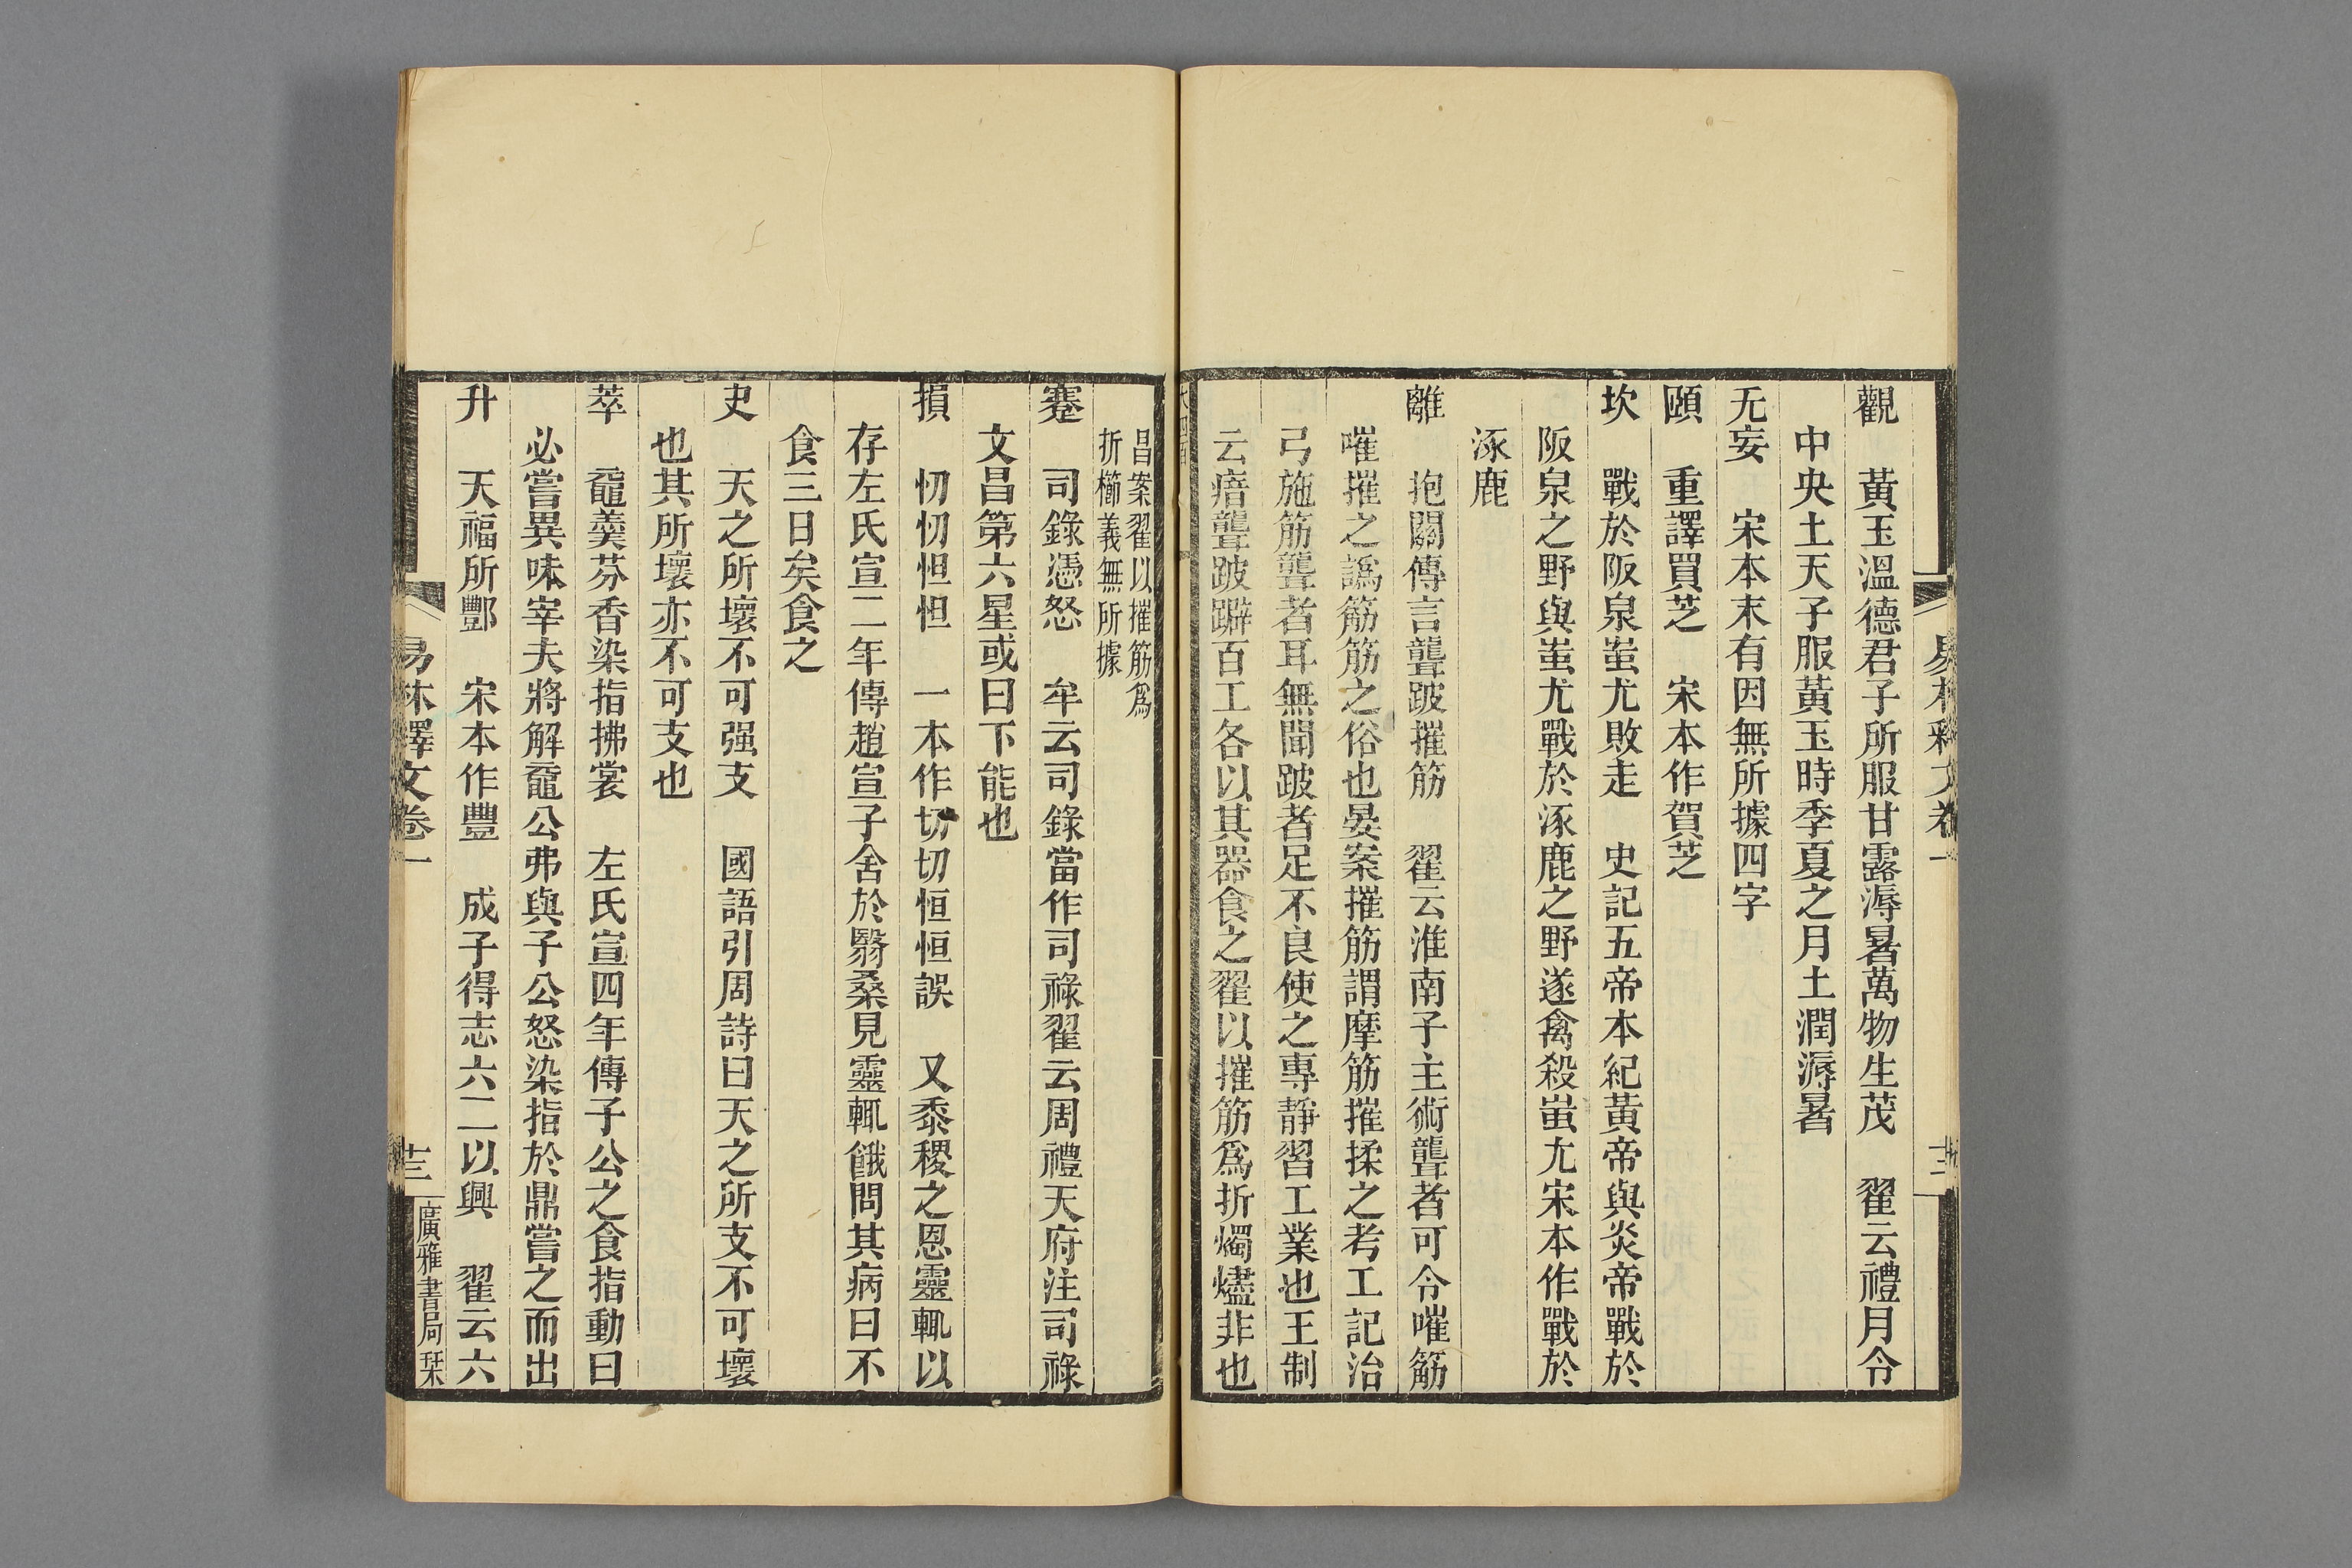 觀　黃玉溫德君子所服甘露溽暑萬物生茂　翟云禮月令
中央土天子服黃玉時季夏之月土潤溽暑
无妄　宋本末有因無所據四字
頤　重譯買芝　宋本作賀芝
坎　戰於阪泉蚩尤敗走　史記五帝本紀黃帝與炎帝戰於
阪泉之野與蚩尤戰於涿鹿之野遂禽殺蚩尤宋本作戰於
涿鹿
離　抱關傳言聾跛摧筋　翟云淮南子主術聾者可令嗺筋
嗺摧之譌筋筋之俗也晏案摧筋謂摩筋摧揉之考工記治
弓施筋聾者耳無聞跛者足不良使之專靜習工業也王制
云瘖聾跛躃百工各以其器食之翟以摧筋爲折燭燼非也
昌案翟以摧筋爲
折櫛義無所據
蹇　司錄憑怒　牟云司錄當作司祿翟云周禮天府注司祿
文昌第六星或曰下能也
損　忉忉怛怛　一本作切切恒恒誤　又黍稷之恩靈輒以
存左氏宣二年傳趙宣子舍於翳桑見靈輒餓問其病曰不
食三日矣食之
夬　天之所壞不可强支　國語引周詩曰天之所支不可壞
也其所壞亦不可支也
萃　黿羹芬香染指拂裳　左氏宣四年傳子公之食指動曰
必嘗異味宰夫將解黿公弗與子公怒染指於鼎嘗之而出
升　天福所酆　宋本作豐　成子得志六二以興　翟云六
易林釋文卷一
十三
廣雅書局栞